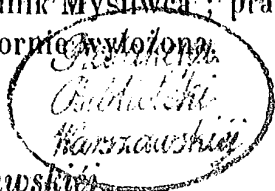 nik Myśliwca ; pra
ornie wyłożona.
Biblioteki
Warszawskiéj
wskiéj